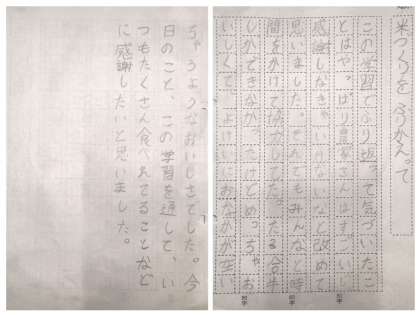 米つくりをふりかえって
この学習でふり返って気づいたこ
とはやっぱり農家さんはすごいし
感謝しなきゃいけないなと改めて
思いました。それでもみんなと時
間をかけて協力して
しかできなかったけどめっちゃお
いしくて、よけいにおなかが空い
ちゃうようなおいしさでした。今
日のこと、この学習を通して、い
つもたくさん食べれてることなど
に感謝したいと思いました。